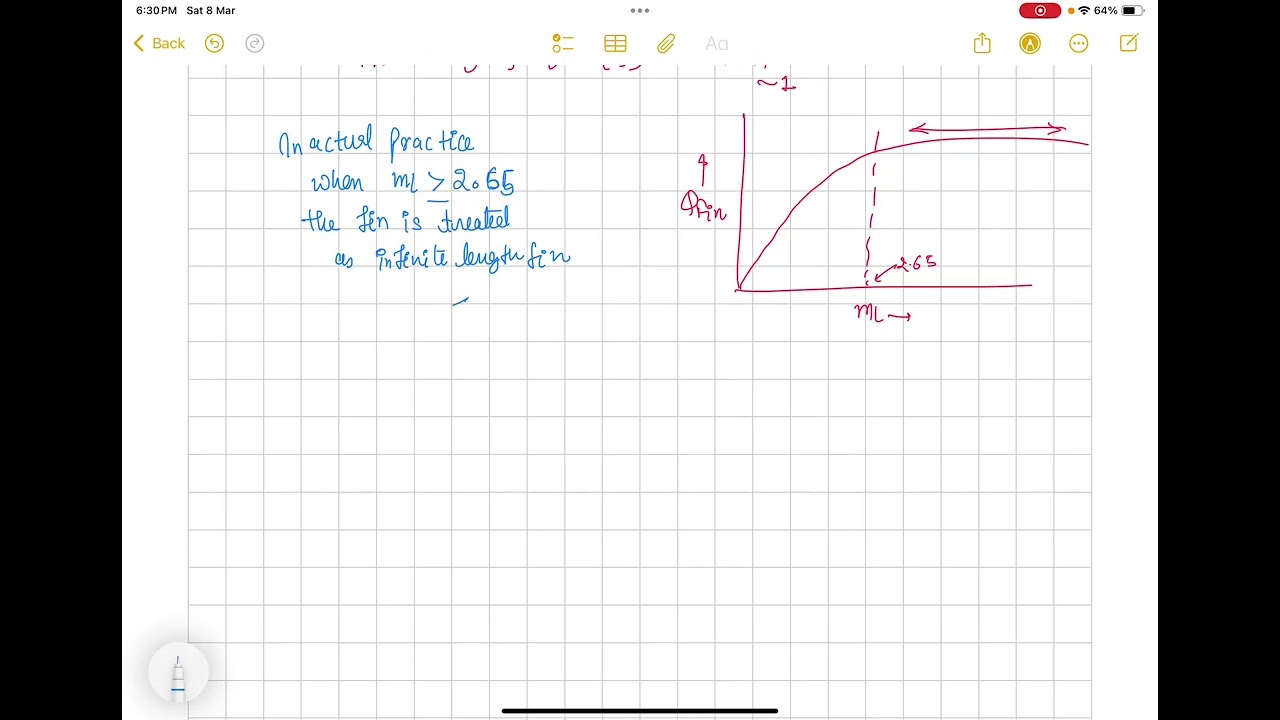 6:30 PM Sat 8 Mar
64%
Back
Aa
~1
In actual practice
when ml ≥ 2.65
the fin is treated
as infinite length fin
Qfin
2.65
mL →